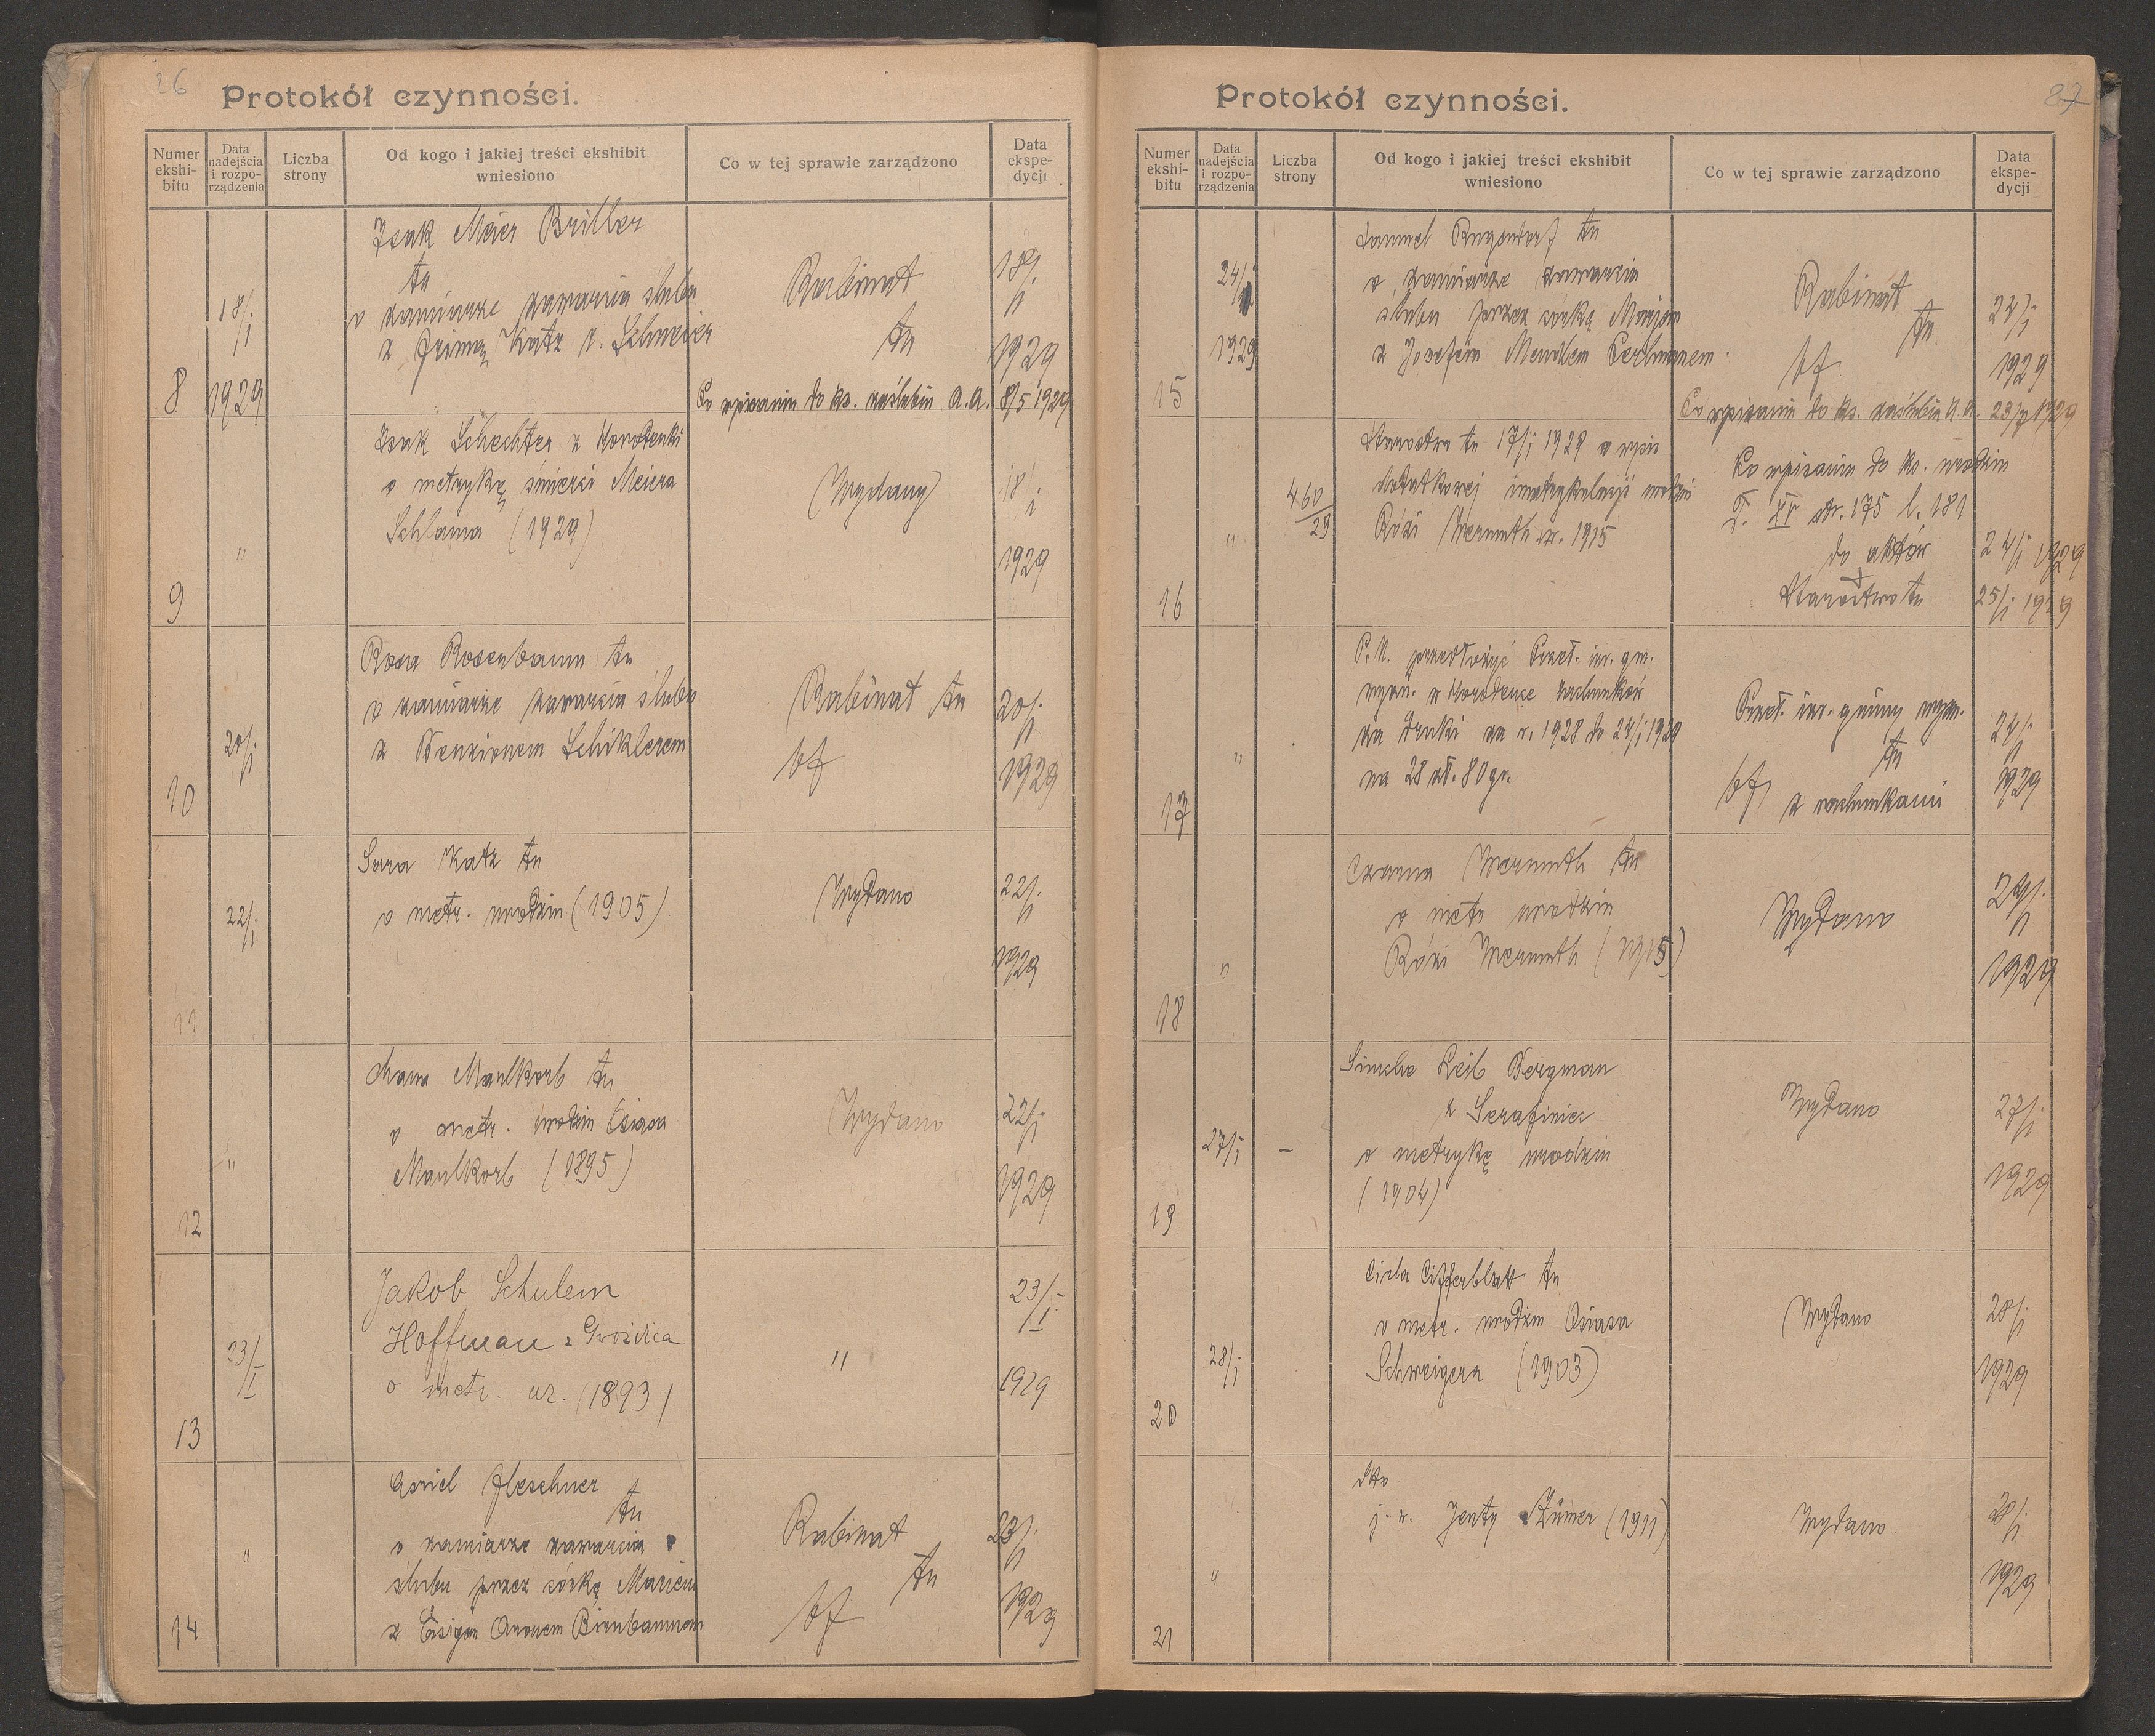 26
Protokół czynności.
Numer ekshi-bitu
Data nadejścia i rozpo-rządzenia
Liczba strony
Od kogo i jakiej treści ekshibit wniesiono
Co w tej sprawie zarządzono
Data ekspe-dycji
8
18/I 1929
Isak Meier Briller
tu
o zamiarze zawarcia ślubu
z Katz
Rabinat
tu
18/I 1929
Po wpisaniu do ks. zaślubin a.a. 8/5 1929
9
"
Isak Schechter z Horodenki
o metrykę śmierci Meiera
Schlama (1929)
(Wydany)
18/I 1929
10
20/I
Rosa Rosenbaum tu
o zamiarze zawarcia ślubu
z Benzionem Schiklerem
Rabinat tu
bf
20/I 1929
11
22/I
Sara Katz tu
o metr. urodzin (1905)
Wydano
22/I 1929
12
"
Chana Maulkorb tu
o metr. urodzin Osiasa
Maulkorb (1895)
Wydano
22/I 1929
13
23/I
Jakob Schulem
Hoffman z Gwoźdźca
o metr. ur. (1893)
"
23/I 1929
14
"
Asriel Fleschner
tu
o zamiarze zawarcia
ślubu przez córkę Mariem
z Aronem Birnbaumem
Rabinat
tu
bf
23/I 1929
27
Protokół czynności.
Numer ekshi-bitu
Data nadejścia i rozpo-rządzenia
Liczba strony
Od kogo i jakiej treści ekshibit wniesiono
Co w tej sprawie zarządzono
Data ekspe-dycji
15
24/I 1929
tu
o zamiarze zawarcia
ślubu przez córkę
z Josefem Mendlem Perlmanem.
Rabinat
tu.
bf
24/I 1929
Po wpisaniu do ks. zaślubin a.a.
16
"
460/29
Starostwo tu 17/I 1929 o wpis
dodatkowej imatrykulacji urodzin
Rózi Wermuth ur. 1915
Po wpisaniu do ks. urodzin
T. XV str. 175 l. 181
do aktów
24/I 1929
Starostwo tu
25/I 1929
17
"
P.N. przedłożyć Przeł. izr. gm.
wyzn. w Horodence rachunków
za druki za r. 1928 do 24/I 1929
na 28 zł. 80 gr.
Przeł. izr. gminy wyzn.
tu
bf z rachunkami
24/I 1929
18
"
Czarna Wermuth tu
o metr urodzin
Rózi Wermuth (1915)
Wydano
24/I 1929
19
27/I
–
Simche Leib Bergman
z Serafiniec
o metrykę urodzin
(1904)
Wydano
27/I 1929
20
28/I
Cirla Cifferblatt tu
o metr. urodzin Osiasa
Schweigera (1903)
Wydano
28/I 1929
21
"
dtto
j. w. Jenty (1911)
Wydano
28/I 1929